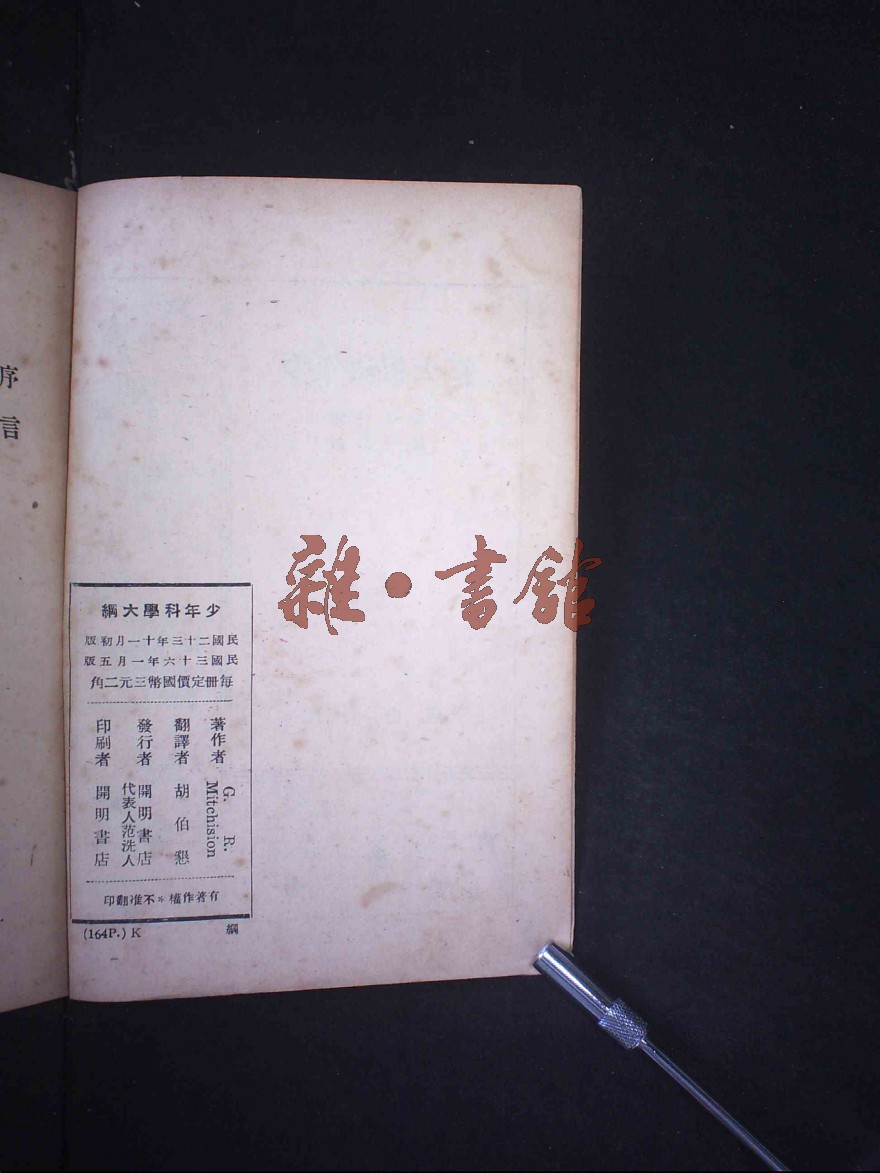 少年科學大綱
民國二十三年十一月初版
民國三十六年一月五版
每冊定價國幣三元二角
著作者 G. R. Mitchision
翻譯者 胡伯懇
發行者 開明書店
代表人范洗人
印刷者 開明書店
有著作權＊不准翻印
(164P.) K
綱
序言
雜・書館